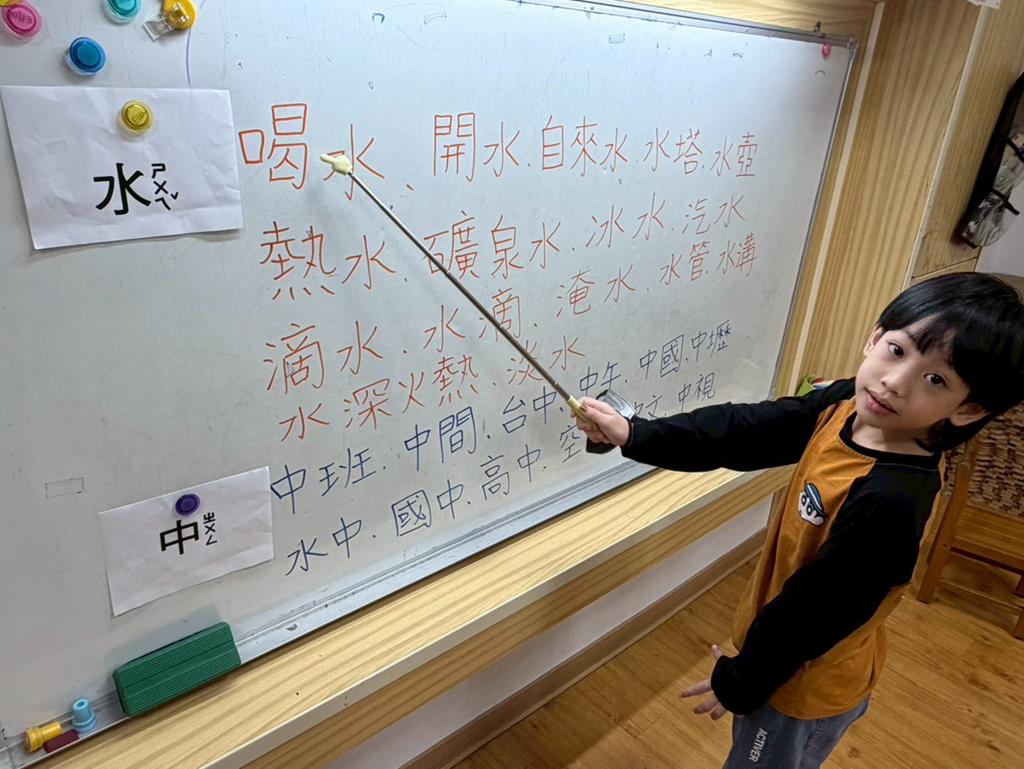 水 ㄕㄨㄟˇ
喝水、開水、自來水、水塔、水壺
熱水、礦泉水、冰水、汽水
滴水、水滴、淹水、水管、水溝
水深火熱、淡水
中 ㄓㄨㄥ
中班、中間、台中、中午、中國、中壢、
水中、國中、高中、空 文、中視
ACTIVER